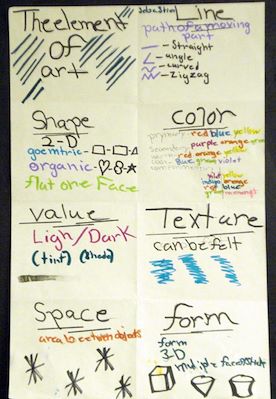 The element
of
art
Line
path of a moving
part
- Straight
- angle
- curved
- Zigzag
Shape
2-D
goemtric-
organic-
flat one Face
Color
primary- red blue yellow
purple orange green
red orange yellow
Blue green violet
violet yellow
indigo orange
red blue
green
Value
Ligh/Dark
(tint) (shade)
Texture
can be felt
Space
area b/c etween objects
form
form
3-D
multiple faces